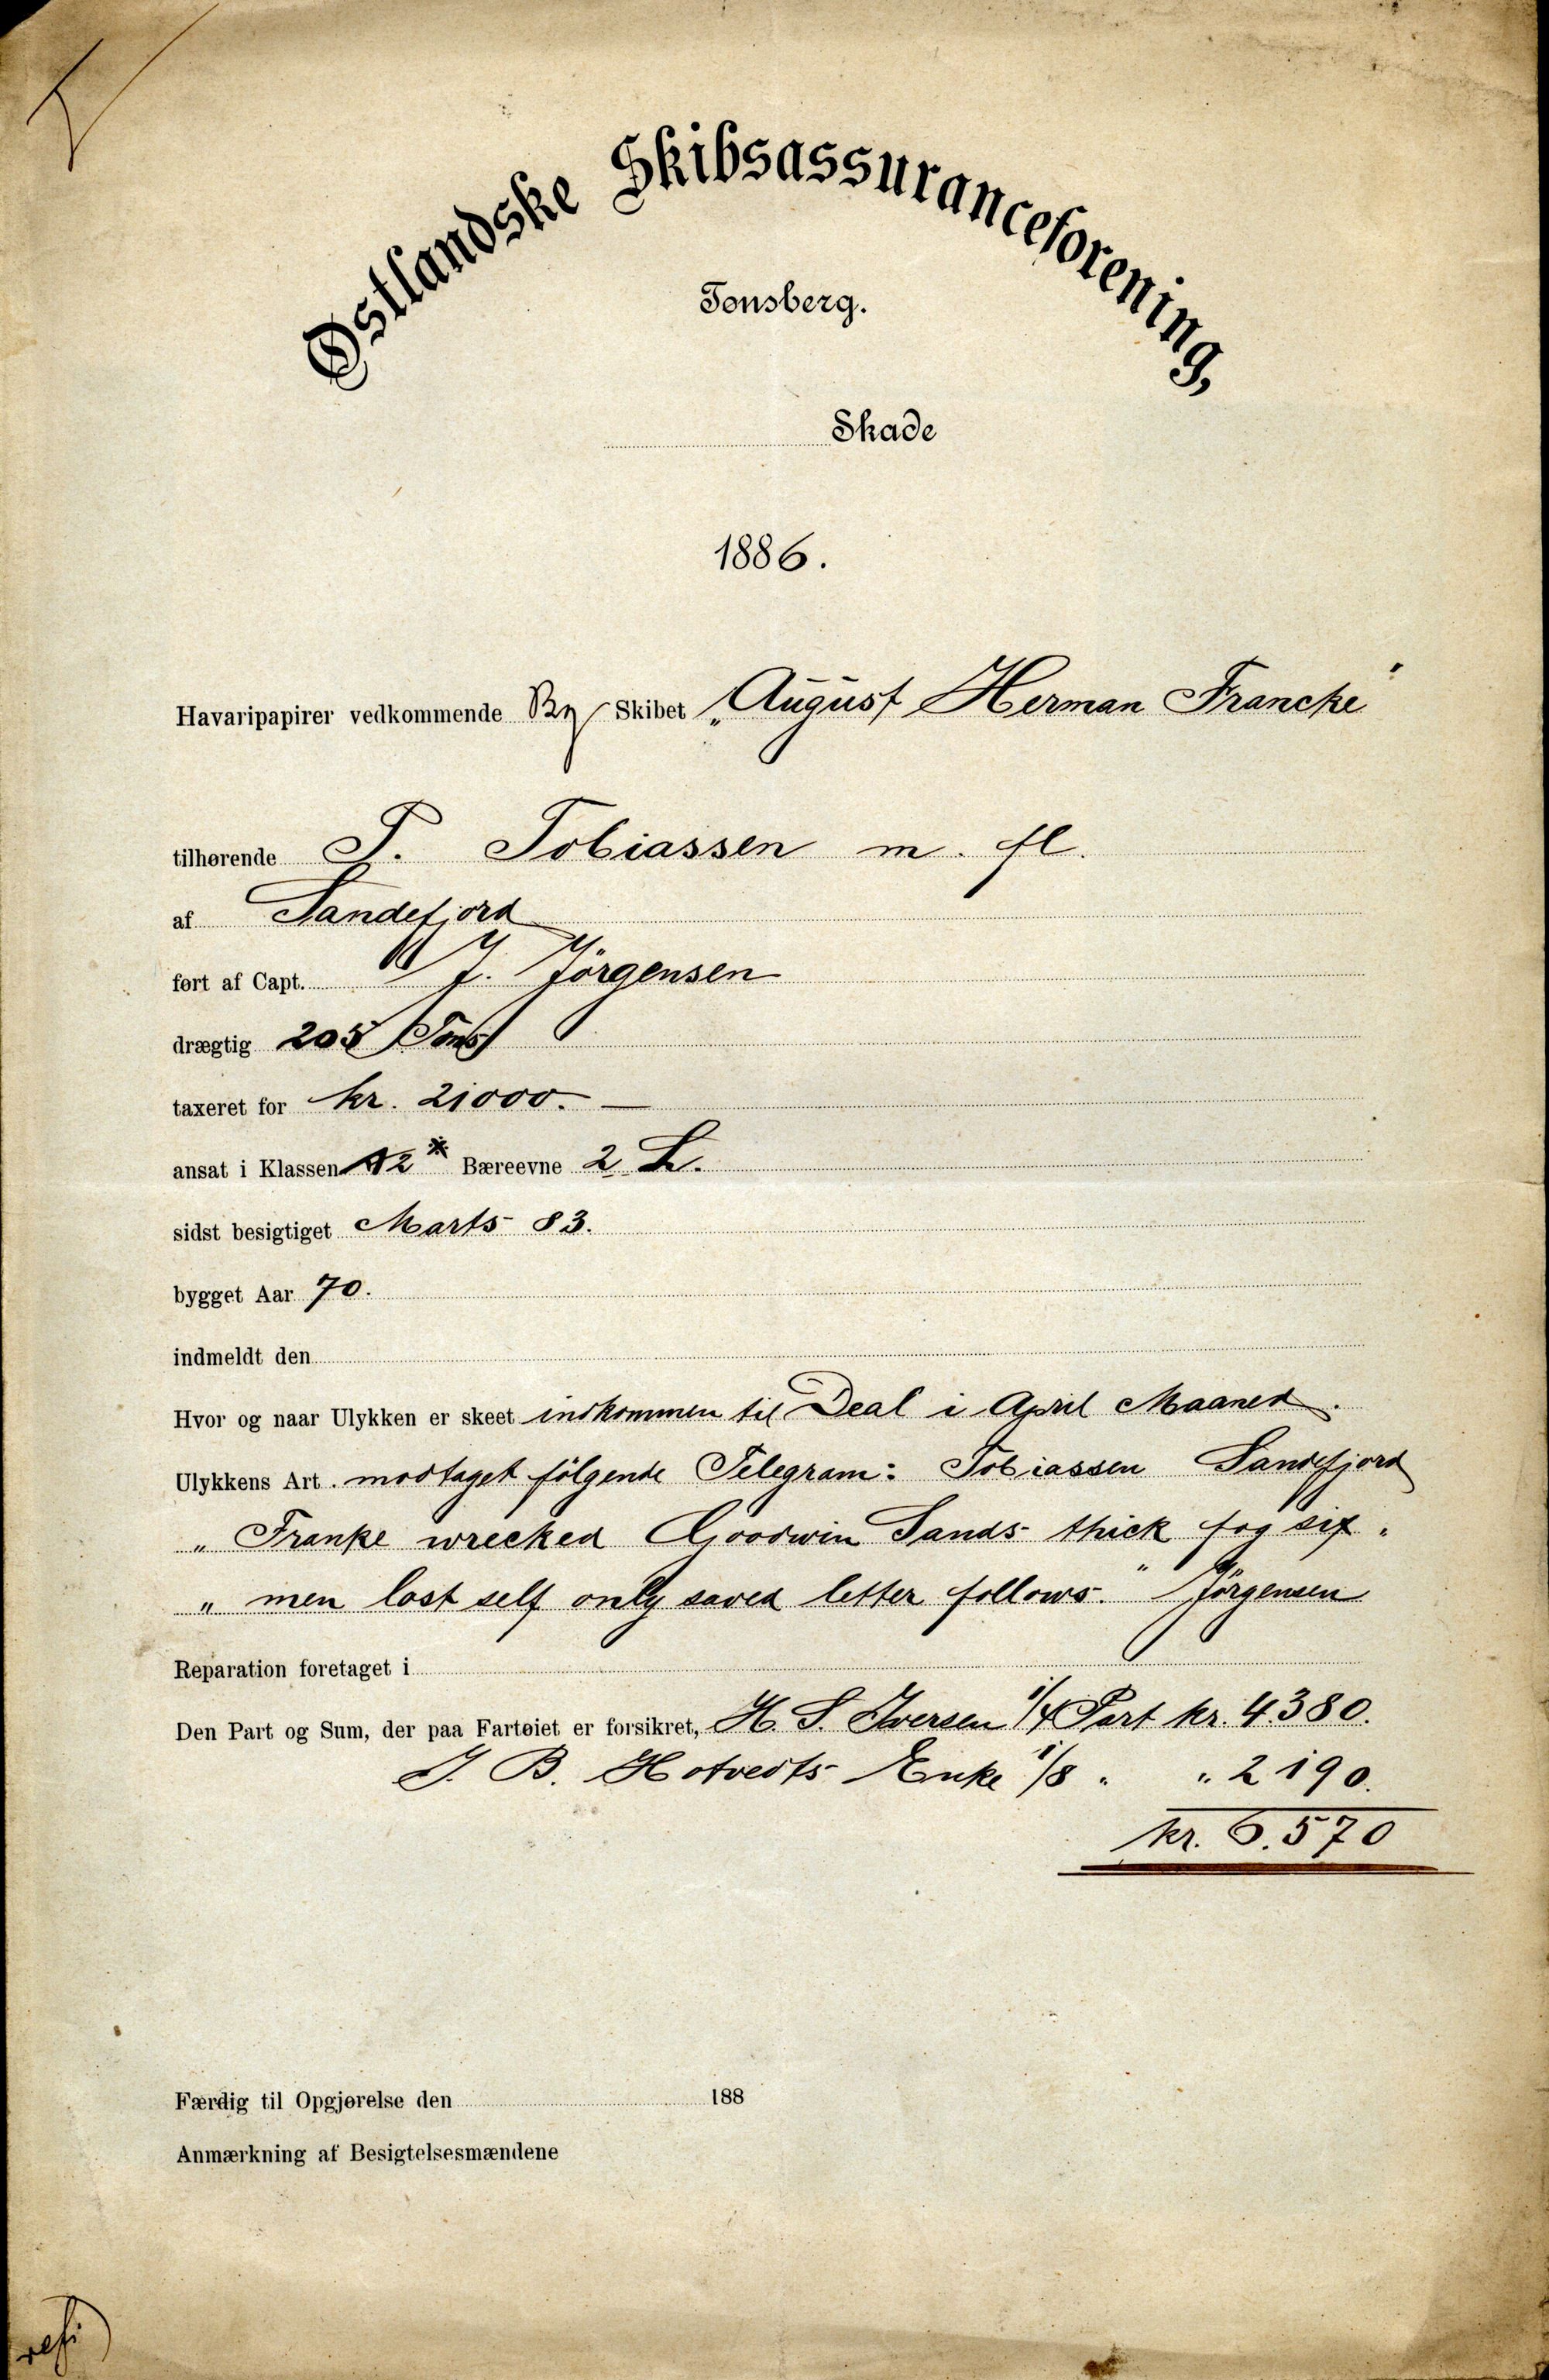 Østlandske Skibsassuranceforening,
Tønsberg.
Skade
1886.
Havaripapirer vedkommende Brg Skibet „August Herman Francke"
tilhørende P. Tobiassen m. fl.
af Sandefjord
ført af Capt. J. Jörgensen
drægtig 205 Tons
taxeret for kr. 21000. —
ansat i Klassen A2* Bæreevne 2 L.
sidst besigtiget Marts 83.
bygget Aar 70.
indmeldt den
Hvor og naar Ulykken er skeet indkommen til Deal i April Maaned.
Ulykkens Art. modtaget følgende Telegram: Tobiassen Sandefjord
„ Franke wrecked Goodwin Sands thick fog six "
„ men lost self only saved letter follows." Jörgensen
Reparation foretaget i
Den Part og Sum, der paa Fartøiet er forsikret, H. S. Iversen 1/4 Part kr. 4.380.
J. B. Hotvedts Enke 1/8 " " 2190.
kr. 6.570
Færdig til Opgjørelse den 188
Anmærkning af Besigtelsesmændene